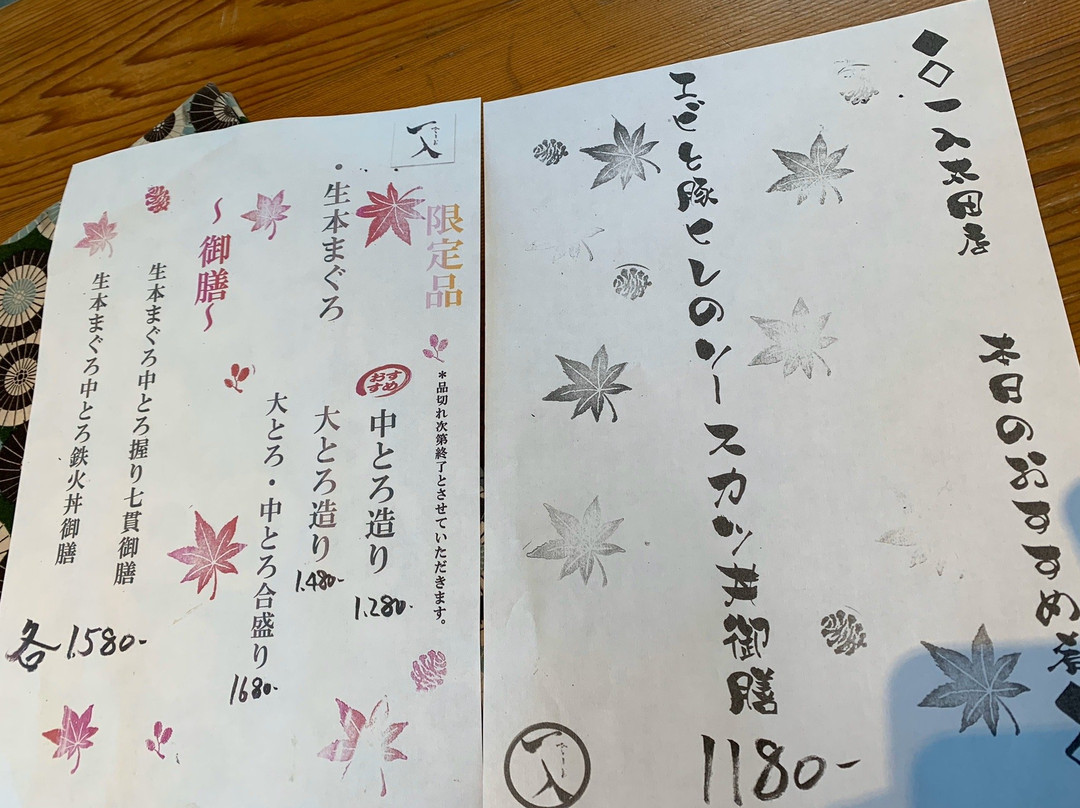 ◆◇一入太田店
本日のおすすめ
エビと豚ヒレのソースカツ丼御膳
1180-
一入
一入
限定品
*品切れ次第終了とさせていただきます。
・生本まぐろ
おすすめ
中とろ造り
1,280-
大とろ造り
1,480-
大とろ・中とろ合盛り
1680-
～御膳～
生本まぐろ中とろ握り七貫御膳
生本まぐろ中とろ鉄火丼御膳
各1,580-